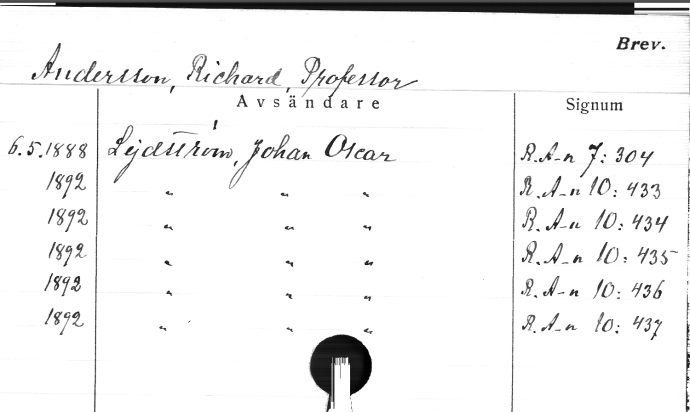 Brev.
Andersson, Richard, Professor
Avsändare Signum
6.5.1888 Lejdström, Johan Oscar R.A-n 7: 304
1892 " " " R.A-n 10: 433
1892 " " " R.A-n 10: 434
1892 " " " R.A-n 10: 435
1892 " " " R.A-n 10: 436
1892 " " " R.A-n 10: 437